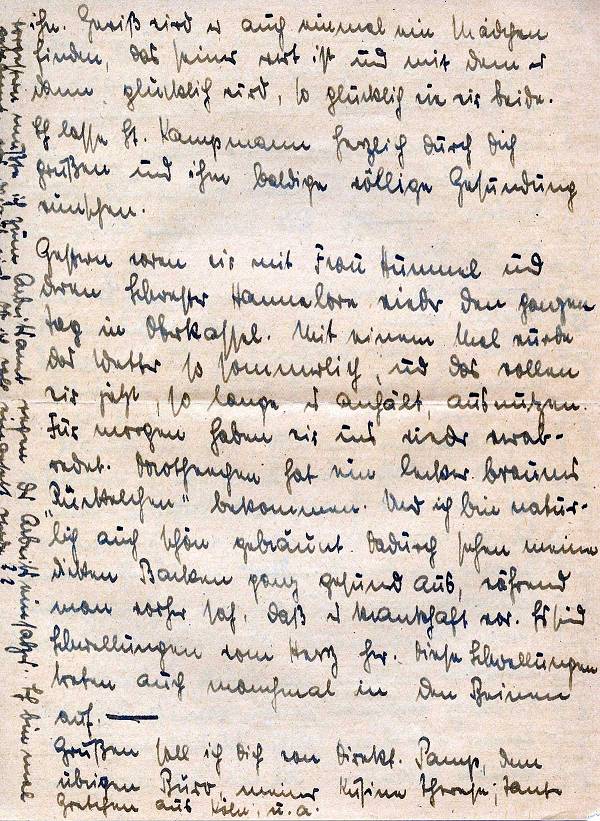 ihn. Gewiß wird er auch einmal ein Mädchen
finden, das seiner wert ist und mit dem er
dann glücklich wird, so glücklich wie wir beide.
Ich lasse Hr. Kampmann herzlich durch Dich
grüßen und ihm baldige völlige Gesundung
wünschen.
Gestern waren wir mit Frau Hummel und
deren Schwester Hannelore wieder den ganzen
Tag in Oberkassel. Mit einem Mal wurde
das Wetter so sommerlich, und das wollen
wir jetzt, so lange es anhält, ausnutzen.
Für morgen haben wir uns wieder verab-
redet. Dorotheechen hat ein lecker braunes
bekommen. Und ich bin natür-
lich auch schön gebräunt. Dadurch sehen meine
dicken Backen ganz gesund aus, während
man vorher sah, daß es krankhaft war. Es sind
Schwellungen vom Herz her. Diese Schwellungen
treten auch manchmal in den Beinen
auf. —
Grüßen soll ich Dich von Direkt. Pamp, dem
übrigen Büro, meiner Kusine Therese, Tante
Gretchen aus Köln, u.a.
mußte ich zum Arbeitsamt wegen der Arbeitseinsatzes. Ich bin mal